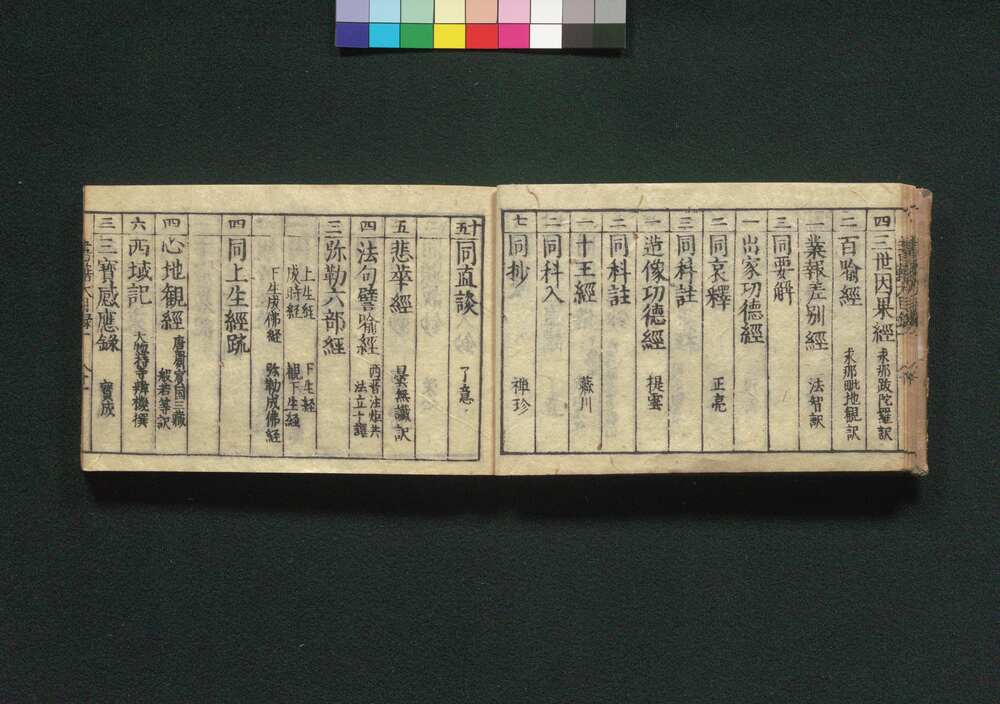 四 三世因果経 求那跋陀羅訳
二 百喩經 求那毗地観訳
一 業報差別經 法智訳
三 同要解
一 出家功德經
二 同哀釋 正亮
三 同科註
一 造像功德經 提雲
二 同科註
一 十王經 蔵川
二 同科入
七 同抄 禅珍
十五 同直談 了意
五 悲華經 曇無讖訳
四 法句譬喩経 西晋法炬共法立十譯
三 弥勒六部経
上生経 下生経
成時経 観下生経
下生成佛経 弥勒成佛経
四 同上生經疏
四 心地観經 唐罽賓国三蔵般若等訳
六 西域記 大惣持寺辨機撰
三 三寳感應録